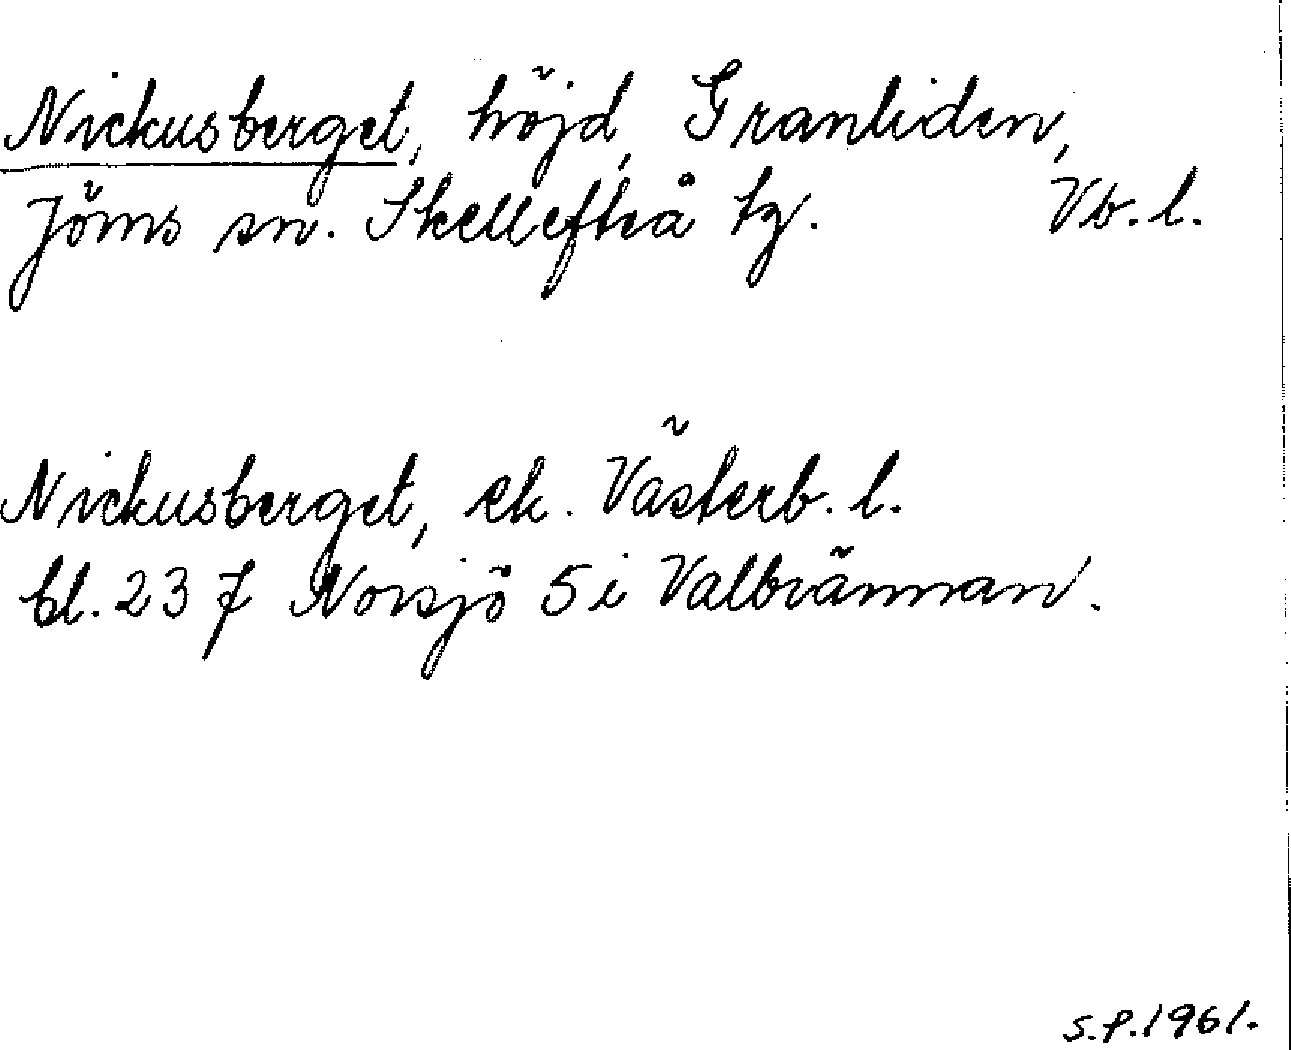 Nickusberget, höjd, Granliden,
Jörns sn. Skellefteå tg. Vb. l.
Nickusberget, ek. Västerb. l.
bl. 23 J Norsjö 5 i Valbrännan.
S.P. 1961.